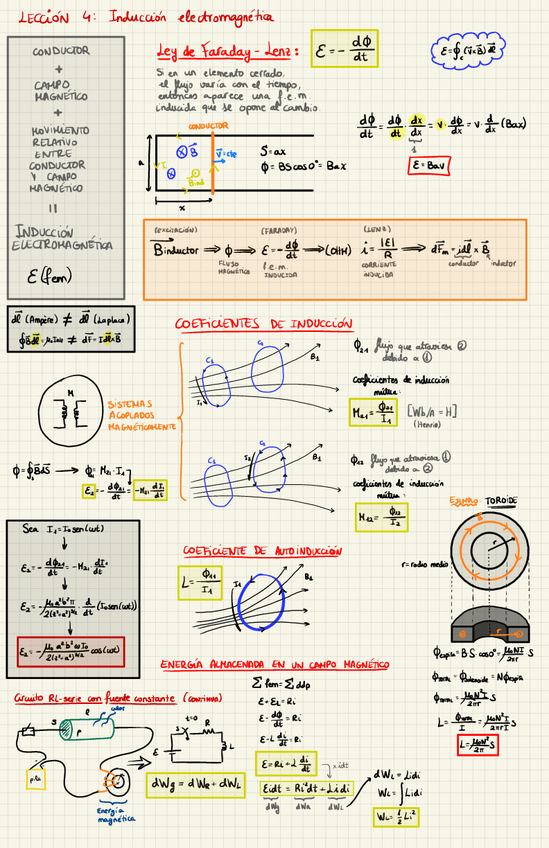 LECCIÓN 4: Inducción electromagnética
CONDUCTOR
+
CAMPO
MAGNÉTICO
+
MOVIMIENTO
RELATIVO
ENTRE
CONDUCTOR
Y CAMPO
MAGNÉTICO
=
INDUCCIÓN
ELECTROMAGNÉTICA
ℰ (fem)
Ley de Faraday-Lenz:
ℰ = - dϕ/dt
Si en un elemento cerrado,
el flujo varía con el tiempo,
entonces aparece una f.e.m.
inducida que se opone al cambio.
CONDUCTOR
a
B
v=cte
I
Bind
x
S = ax
ϕ = BS cos 0° = Bax
dϕ/dt = dϕ/dt · dx/dx = v · dϕ/dx = v · d/dx (Bax)
ℰ = Bav
(EXCITACIÓN) (FARADAY) (LENZ)
B inductor ⇒ ϕ ⇒ ℰ = - dϕ/dt ⇒ (OHM) i = |ℰ|/R ⇒ dFm = i dl × B
FLUJO MAGNÉTICO
f.e.m. INDUCIDA
CORRIENTE INDUCIDA
conductor
inductor
dl (Ampère) ≠ dl (Laplace)
COEFICIENTES DE INDUCCIÓN
M
SISTEMAS
ACOPLADOS
MAGNÉTICAMENTE
I1
B1
ϕ21 flujo que atraviesa ②
debido a ①
coeficientes de inducción
mutua:
M21 = ϕ21/I1 [Wb/A = H]
(Henrio)
I2
ϕ12 flujo que atraviesa ①
debido a ②
coeficientes de inducción
mutua:
M12 = ϕ12/I2
ℰ2 = - dϕ21/dt = - M21 · dI1/dt
Sea I1 = I0 sen(ωt)
ℰ2 = - dϕ21/dt = - M21 · dI1/dt
COEFICIENTE DE AUTOINDUCCIÓN
L = ϕ11/I1
I1
B1
EJEMPLO: TOROIDE
r
r = radio medio
ϕespira = B S · cos 0° = μ0NI/2πr S
ϕtotal = ϕtoroide = Nϕespira
ϕtotal = μ0N²I/2πr S
L = ϕtotal/I = μ0N²I/2πrI S
L = μ0N²/2πr S
ENERGÍA ALMACENADA EN UN CAMPO MAGNÉTICO
Circuito RL-serie con fuente constante (CONTINUA)
S
R
calor
P
pila
Energía
magnética
t=0
S
R
ℰ
L
dWg = dWR + dWL
∑ fem = ∑ ddp
ℰ - ℰL = Ri
ℰ - dϕ/dt = Ri
ℰ - L di/dt = Ri
ℰ = Ri + L di/dt
x idt
ℰidt = Ri²dt + Lidi
dWg dWR dWL
dWL = Lidi
WL = ∫ Lidi
WL = 1/2 Li²